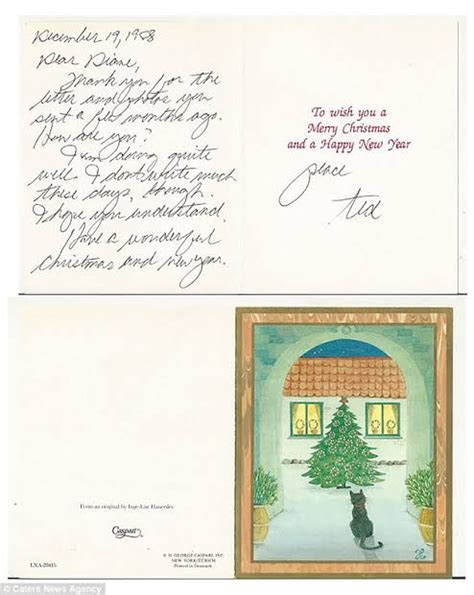 December 19, 1988
Dear Diane,
Thank you for the
letter and photos you
sent a few months ago.
How are you?
I am doing quite
well. I don't write much
these days, though.
I hope you understand.
Have a wonderful
Christmas and new year.
To wish you a
Merry Christmas
and a Happy New Year
peace
Ted
From an original by Inge-Lise
Caspari
© H. GEORGE CASPARI, INC.
NEW YORK/ZÜRICH
Printed in Denmark
© Caters News Agency